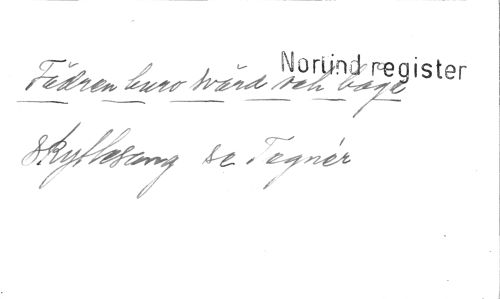 Norlind register
Fädren buro svärd och båge
Skyttesang se Tegnér